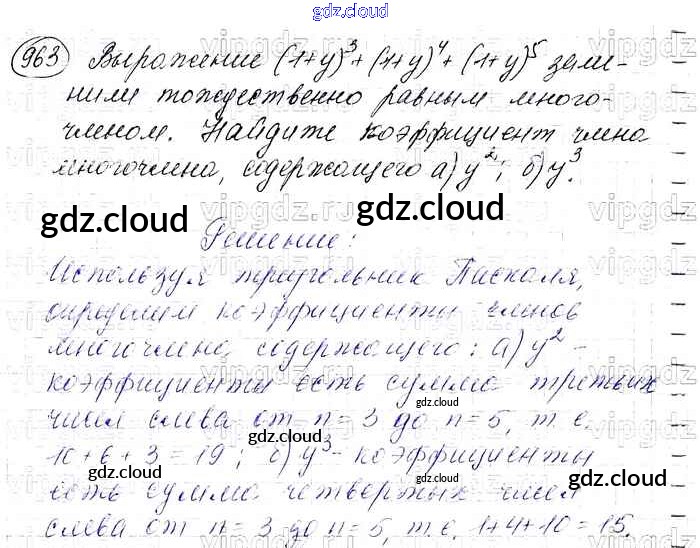 gdz.cloud
963 Выражение (1+y)³+(1+y)⁴+(1+y)⁵ заме-
нили тождественно равным много-
членом. Найдите коэффициент члена
многочлена, содержащего а) y²; б) y³.
gdz.cloud gdz.cloud
Решение:
Используя треугольник Паскаля,
определим коэффициенты членов
многочлена, содержащего: а) y² -
коэффициенты есть сумма третьих
чисел слева от n = 3 до n = 5, т.е.
gdz.cloud
10 + 6 + 3 = 19; б) y³ - коэффициенты
gdz.cloud
есть сумма четвертых чисел
gdz.cloud
слева от n = 3 до n = 5, т.е. 1+4+10 = 15.